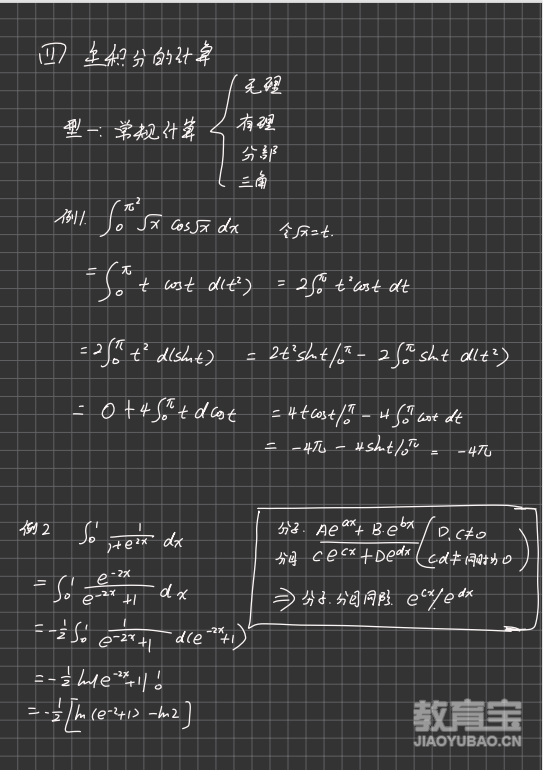 (四) 定积分的计算
无理
有理
型一: 常规计算
分部
三角
例1. ∫₀^{π²} √x cos√x dx 令√x=t.
= ∫₀^π t cost d(t²) = 2∫₀^π t²cost dt
= 2∫₀^π t² d(sint) = 2t²sint|₀^π - 2∫₀^π sint d(t²)
= 0+4∫₀^π t dcost = 4tcost|₀^π - 4∫₀^π cost dt
= -4π - 4sint|₀^π = -4π
例2 ∫₀¹ 1/(1+e^{2x}) dx
= ∫₀¹ e^{-2x}/(e^{-2x}+1) dx
= -1/2 ∫₀¹ 1/(e^{-2x}+1) d(e^{-2x}+1)
= -1/2 ln(e^{-2x}+1)|₀¹
= -1/2 [ln(e^{-2}+1) - ln2]
分子. Ae^{ax}+B.e^{bx} (D,C≠0
分母 Ce^{cx}+De^{dx} c.d不同时为0)
⇒ 分子.分母同除 e^{cx}/e^{dx}
教育宝
JIAOYUBAO.CN